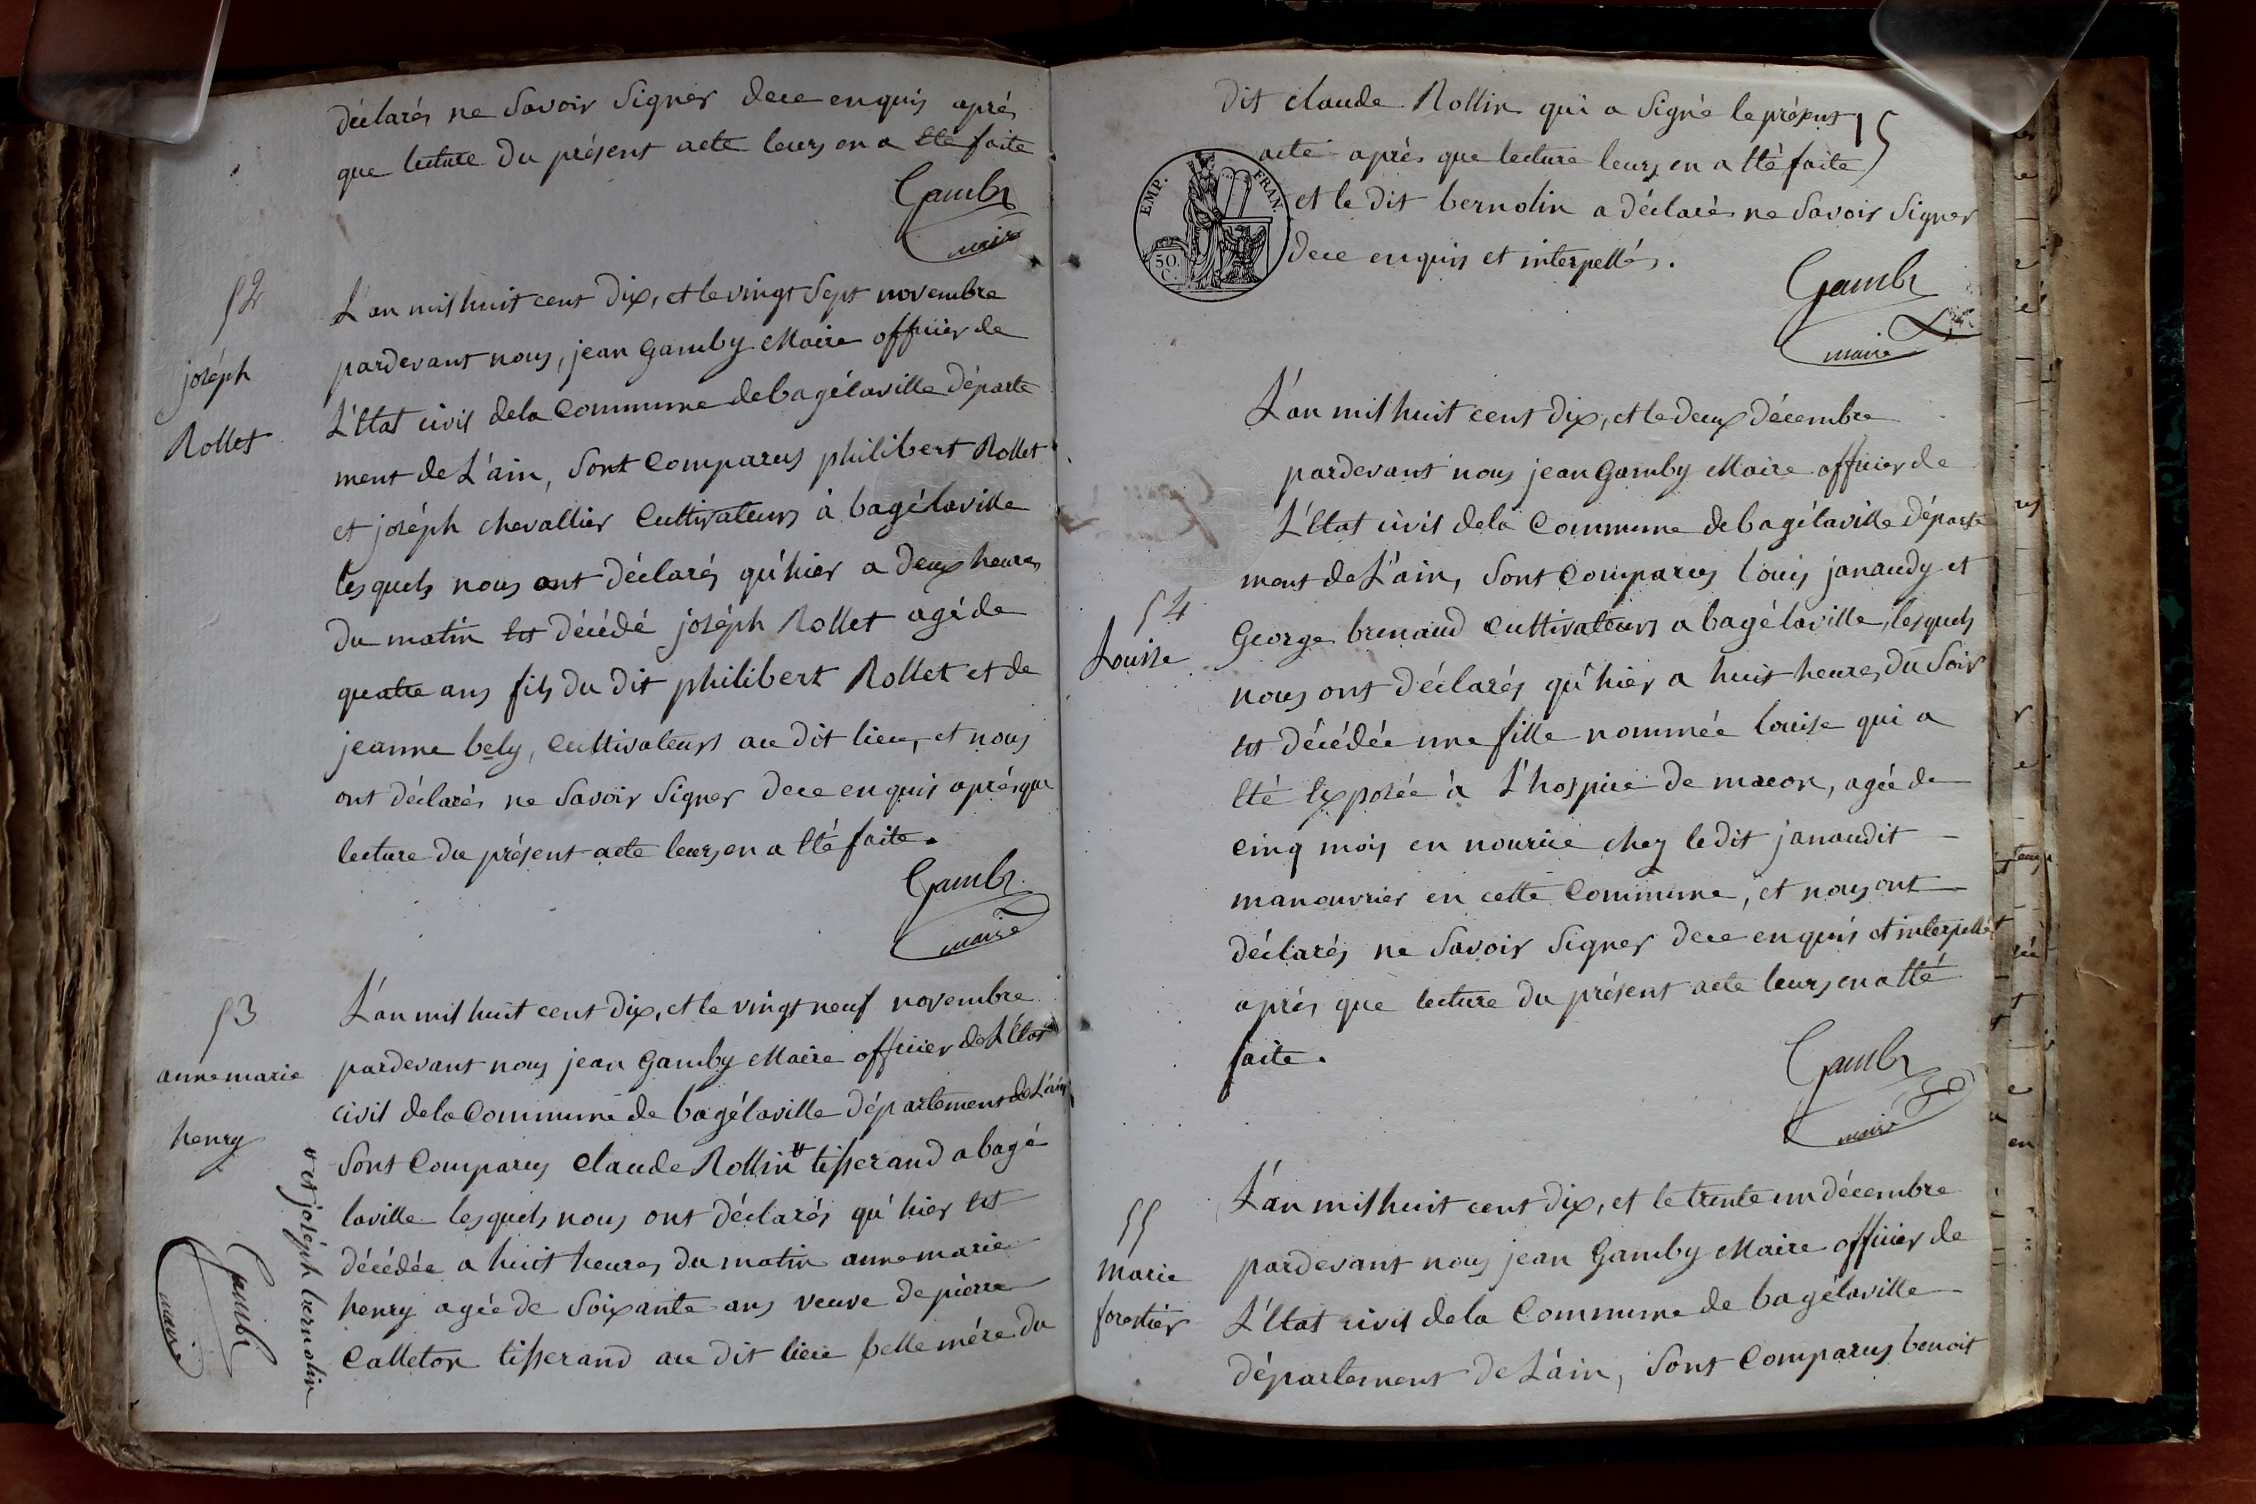 déclarés ne Savoir Signer dece enquis aprés
que lecture du présent acte leurs en a été faite
Gamby
maire
52
joséph
Rollet
L'an mil huit cent dix, et le vingt Sept novembre
pardevant nous, jean Gamby Maire officier de
L'Etat civil dela Commune de bagélaville départe
ment de L'ain, Sont Comparus philibert Rollet
et joséph chevallier Cultivateurs à bagélaville
lesquels nous ont déclarés qu'hier a deux heures
du matin est décédé joséph Rollet agé de
quatre ans fils du dit philibert Rollet et de
jeanne bely, Cultivateurs au dit lieu, et nous
ont déclarés ne Savoir Signer dece enquis aprés que
lecture du présent acte leurs en a été faite.
Gamby
maire
53
anne marie
henry
L'an mil huit cent dix, et le vingt neuf novembre
pardevant nous jean Gamby Maire officier de L'Etat
civil dela Commune de bagélaville département de L'ain
Sont Comparus Claude Rollin tisserand a bagé
laville lesquels nous ont déclarés qu'hier est
décédée a huit heures du matin anne marie
henry agée de Soixante ans veuve de pierre
Calleton tisserand au dit lieu belle mére du
et joséph bernolin
Gamby
maire
dit Claude Rollin qui a Signé le présent
15
acte aprés que lecture leurs en a été faite
EMP. FRAN.
50. C.
et le dit bernolin a déclaré ne Savoir Signer
dece enquis et interpellés.
Gamby
maire
L'an mil huit cent dix, et le deux décembre
pardevant nous jean Gamby Maire officier de
L'Etat civil dela Commune de bagélaville départe
ment de L'ain, Sont Comparus Louis janaudy et
54
Louise
George brenaud Cultivateurs a bagélaville, lesquels
nous ont déclarés qu'hier a huit heures du Soir
est décédée une fille nommée Louise qui a
été Exposée à L'hospice de macon, agée de
cinq mois en nourice chez le dit janaudit
manouvrier en cette Commune, et nous ont
déclarés ne Savoir Signer dece enquis et interpellés
aprés que lecture du présent acte leurs en a été
faite.
Gamby
maire
55
Marie
forestier
L'an mil huit cent dix, et le trente un décembre
pardevant nous jean Gamby Maire officier de
L'Etat civil dela Commune de bagélaville
département de L'ain, Sont Comparus benoit